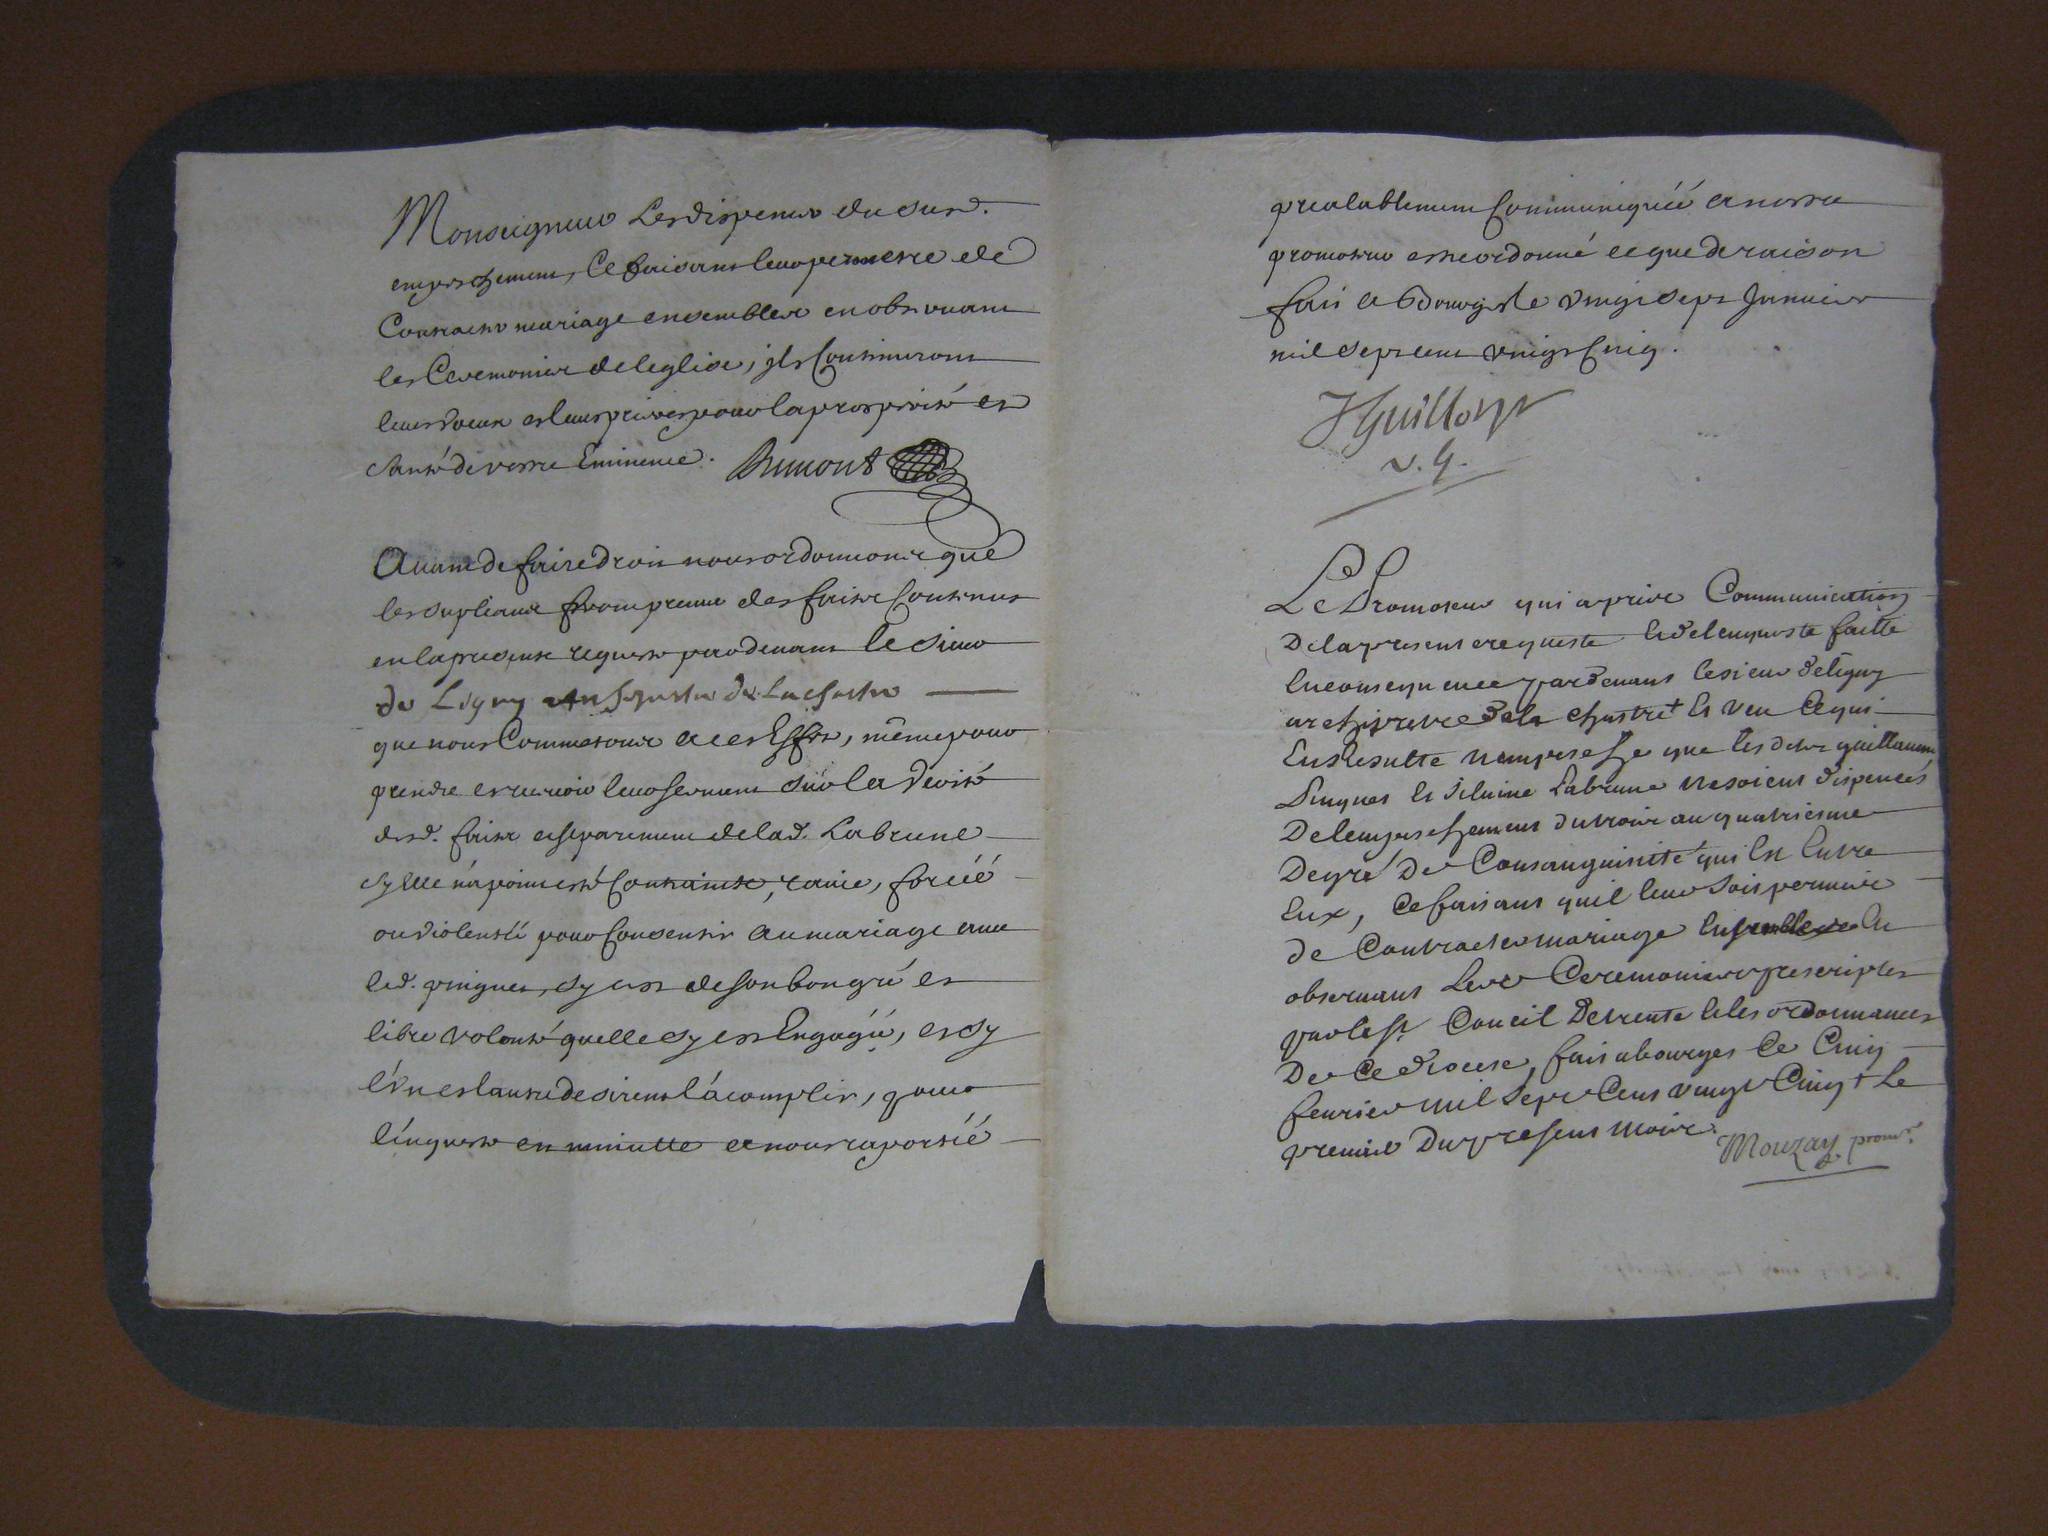 Monseigneur Les dispenser du susd.
empeschement, Ce faisant leur permettre de
Contracter mariage ensemblex en observant
les Ceremonies de leglise, jls Continueront
leurs voeux et leurs prieres pour la prosperité et
santé de vostre Eminence. Dumont
Auant de faire droit nous ordonnons que
les supliants feront preuue des faits Contenus
en la presente requeste pardeuant le sieur
de Ligny archiprestre de La chastre
que nous Commettons a ces Effets, même pour
prendre et receuoir leur serment sur la verité
desd. faits et separement de lad. Labrune
sy elle n'a point esté Contrainte, rauie, forcéé
ou violentéé pour Consentir au mariage auec
led. pingues, sy cest de son bon gré et
libre volonté quelle sy est Engagéé, et sy
l'vn et lautre desirent l'acomplir, pour
l'enqueste en minutte a nous raportéé
prealablement Communiquéé a nostre
promoteur estre ordonné ce que de raison
fait a Bourges le vingt sept Januier
mil sept cent vingt Cinq.
JGuillonyr
v. g.
Le Promoteur qui a prise Communication
De la presente requeste et de lenqueste faitte
En consequence pardeuant le sieur de ligny
archiprevre de la chastre + Et veu Ce qui
En Resulte nempesche que les dits guillaume
Pingues et silvine Labrune ne soient dispensés
De lempeschement du trois au quatriesme
Degré De Consanguinité qui Est Entre
Eux, Ce faisant quil leur soit permis
de Contracter mariage Ensemble En
observant Les Ceremonies prescriptes
par le st Concil De trente et les ordonnances
De Ce diocese, fait a bourges Ce Cinq
feurier mil sept Cent vingt Cinq + Le
premier Du present mois.
Mouzay promr.